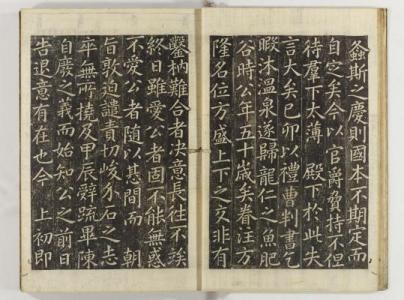 螽斯之慶則國本不期定而
自定矣今以官爵賛持不但
待羣下太薄 殿下於此失
言大矣已卯以禮曹判書乞
暇沐溫泉遂歸龍仁之魚肥
谷時公年五十歲矣眷注方
隆名位方盛上下之交非有
鑿枘難合者決意長往不竢
終日雖愛公者固不能無惑
不愛公者隨以惎間而 朝
旨敦迫譴責切峻介石之志
卒無所撓及甲辰辭疏畢陳
自廢之義而始知公之前日
告退意有在也今 上初即